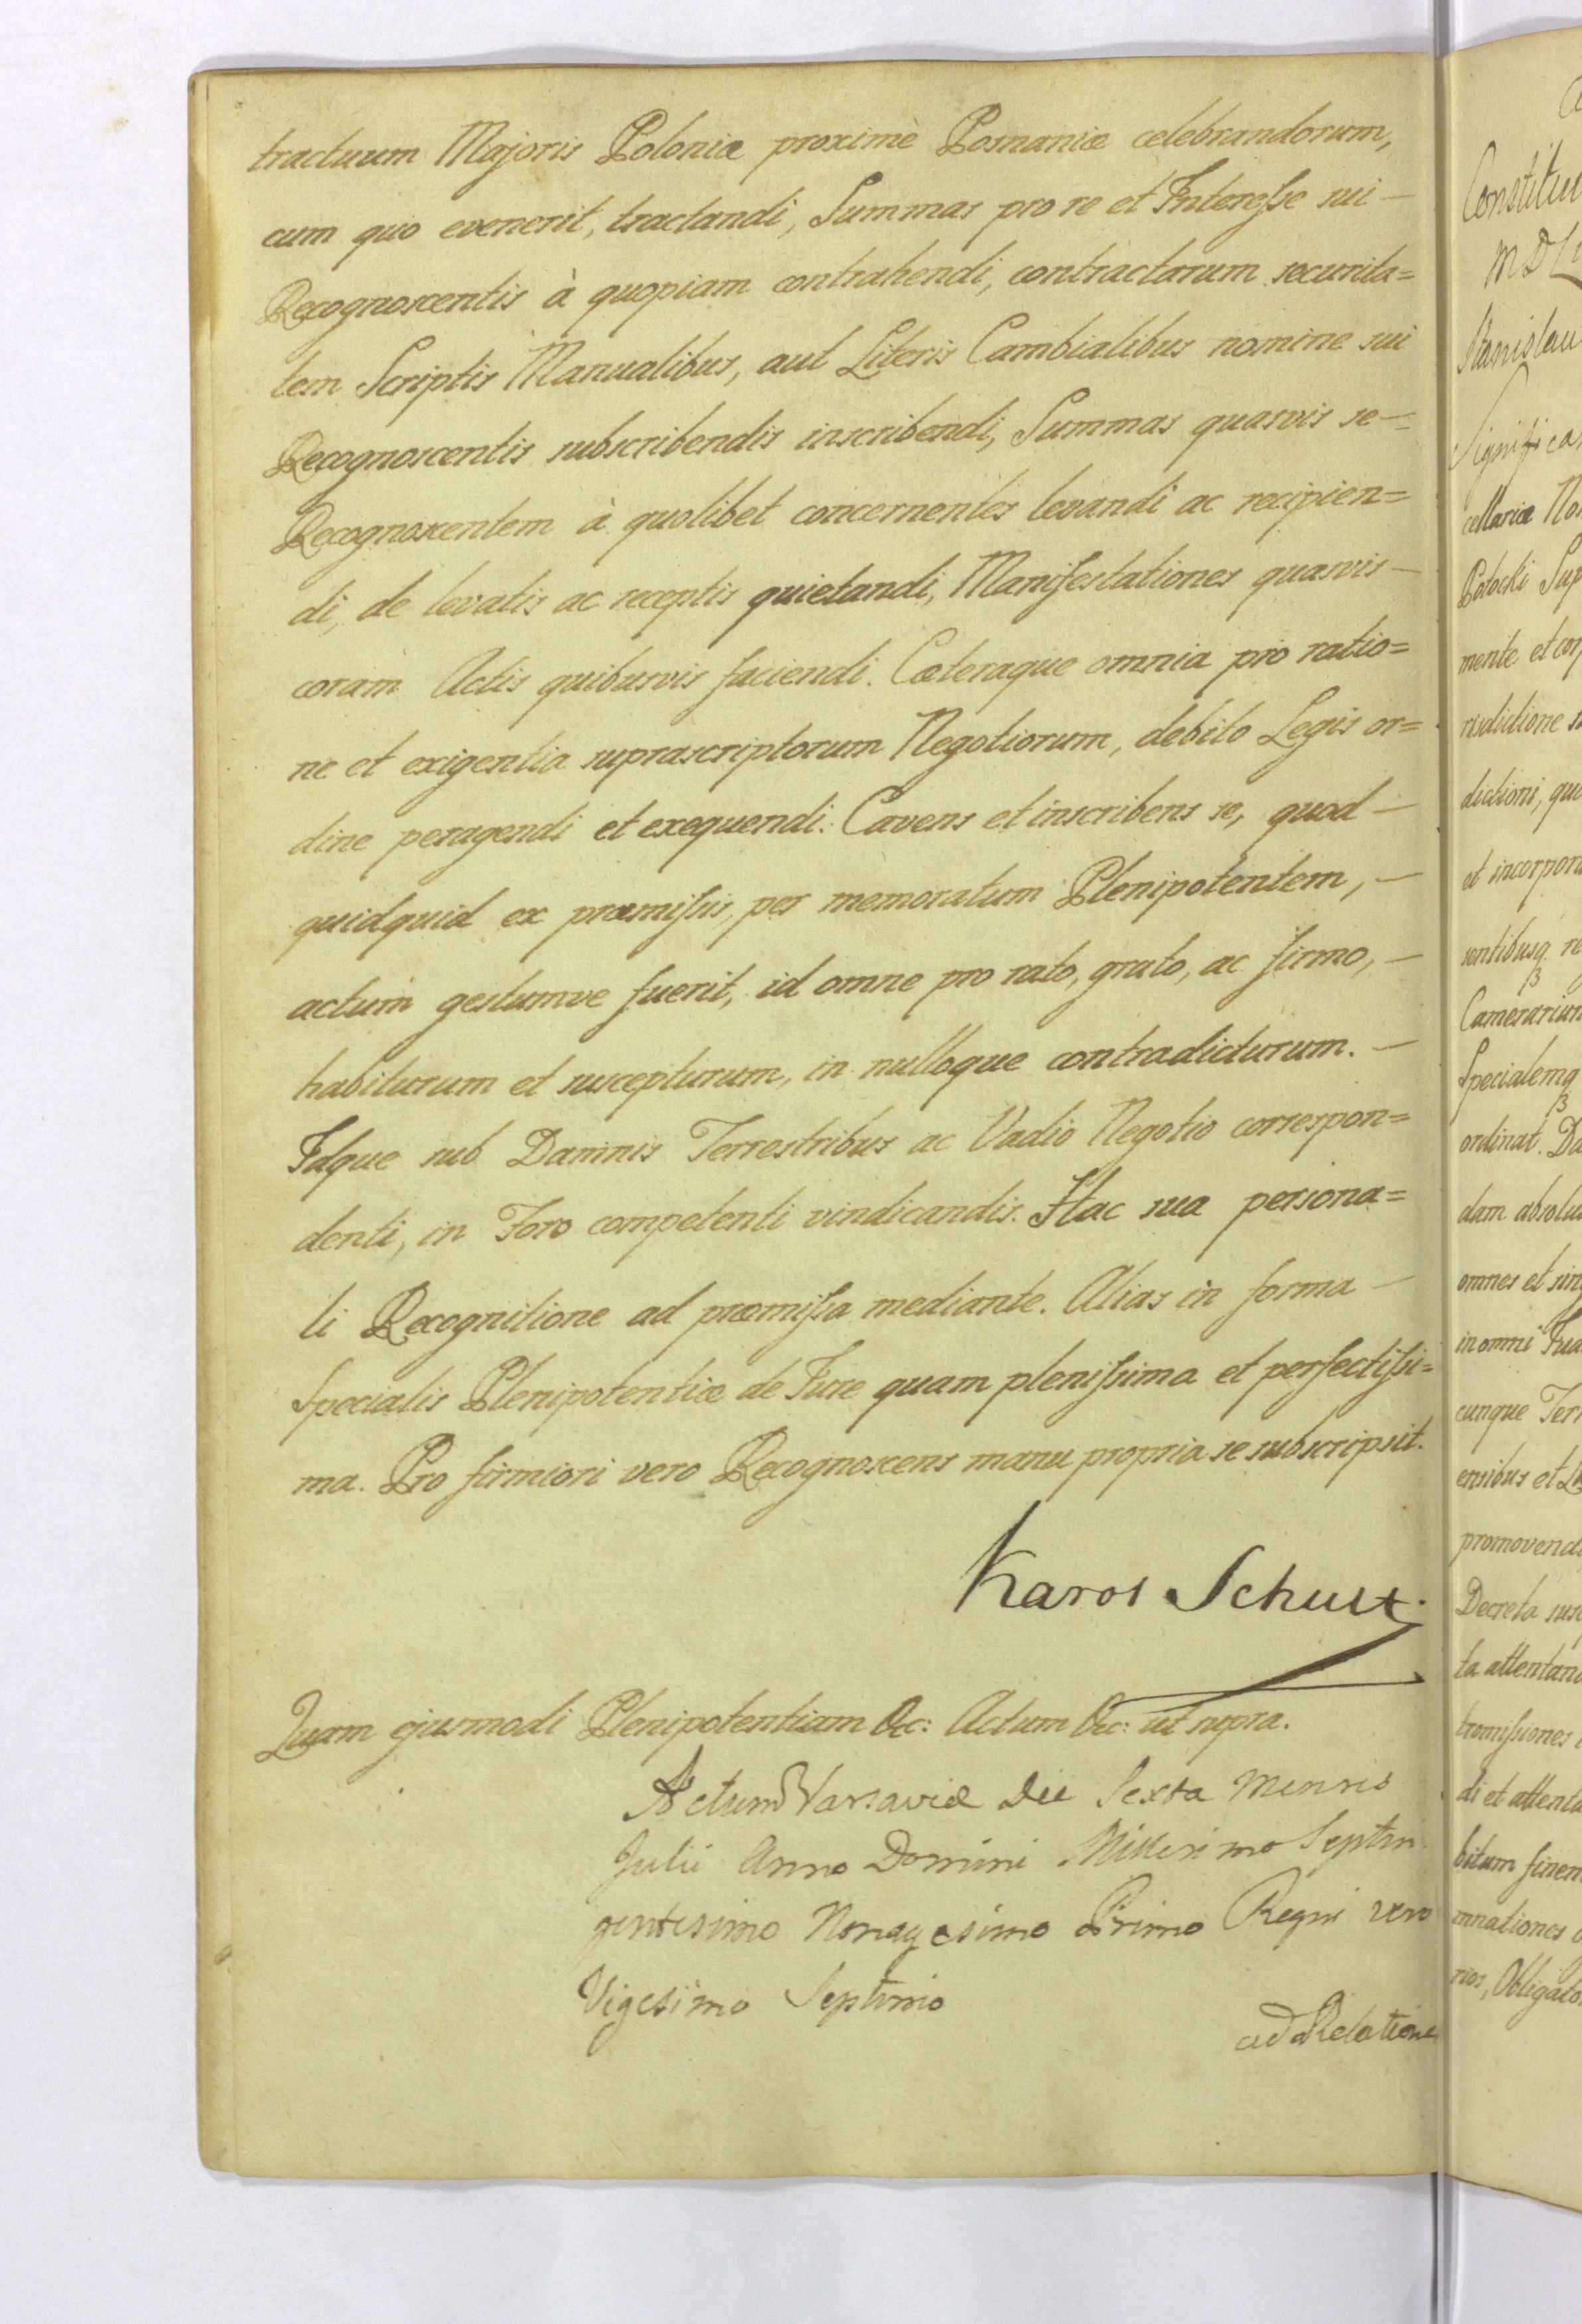 tractuum Majoris Poloniæ proximè Posnaniæ celebrandorum,
cum quo evenerit, tractandi, Summas pro re et Interesse sui —
Recognoscentis à quopiam contrahendi, contractarum securita=
tem Scriptis Manualibus, aut Literis Cambialibus nomine sui
Recognoscentis subscribendis inscribendi, Summas quasvis se —
Recognoscentem à quolibet concernentes levandi ac recipien=
di, de levatis ac receptis quietandi, Manifestationes quasvis —
coram Actis quibusvis faciendi. Cæteraque omnia pro ratio=
ne et exigentia suprascriptorum Negotiorum, debito Legis or=
dine peragendi et exequendi. Cavens et inscribens se, quod —
quidquid ex præmissis, per memoratum Plenipotentem, —
actum gestumve fuerit, id omne pro rato, grato, ac firmo, —
habiturum et suscepturum, in nulloque contradicturum. —
Idque sub Damnis Terrestribus ac Vadio Negotio correspon=
denti, in Foro competenti vindicandis. Hac sua persona=
li Recognitione ad præmissa mediante. Alias in forma —
Specialis Plenipotentiæ de Jure quam plenissima et perfectissi=
ma. Pro firmiori vero Recognoscens manu propria se subscripsit.
Karol Schultz
Quam ejusmodi Plenipotentiam &c: Actum &c: ut supra.
Actum Varsaviæ Die Sexta Mensis
Julii Anno Domini Millesimo Septin
gentesimo Nonagesimo Primo Regni vero
Vigesimo Septimo
ad Relatione
Constitu
Stanislau
Significa
cellariæ No
Potocki Sup
mente et cor
risdictione
dictioni, qu
et incorpora
sentibusq re
Camerarium
Specialemq
ordinat. Da
dam absolu
omnes et sin
in omni Jua
cunque Ter
ensibus et
promovend
Decreta sus
ta attentan
tromissiones
di et attenta
bitum finem
mnationes
rios, Obligato